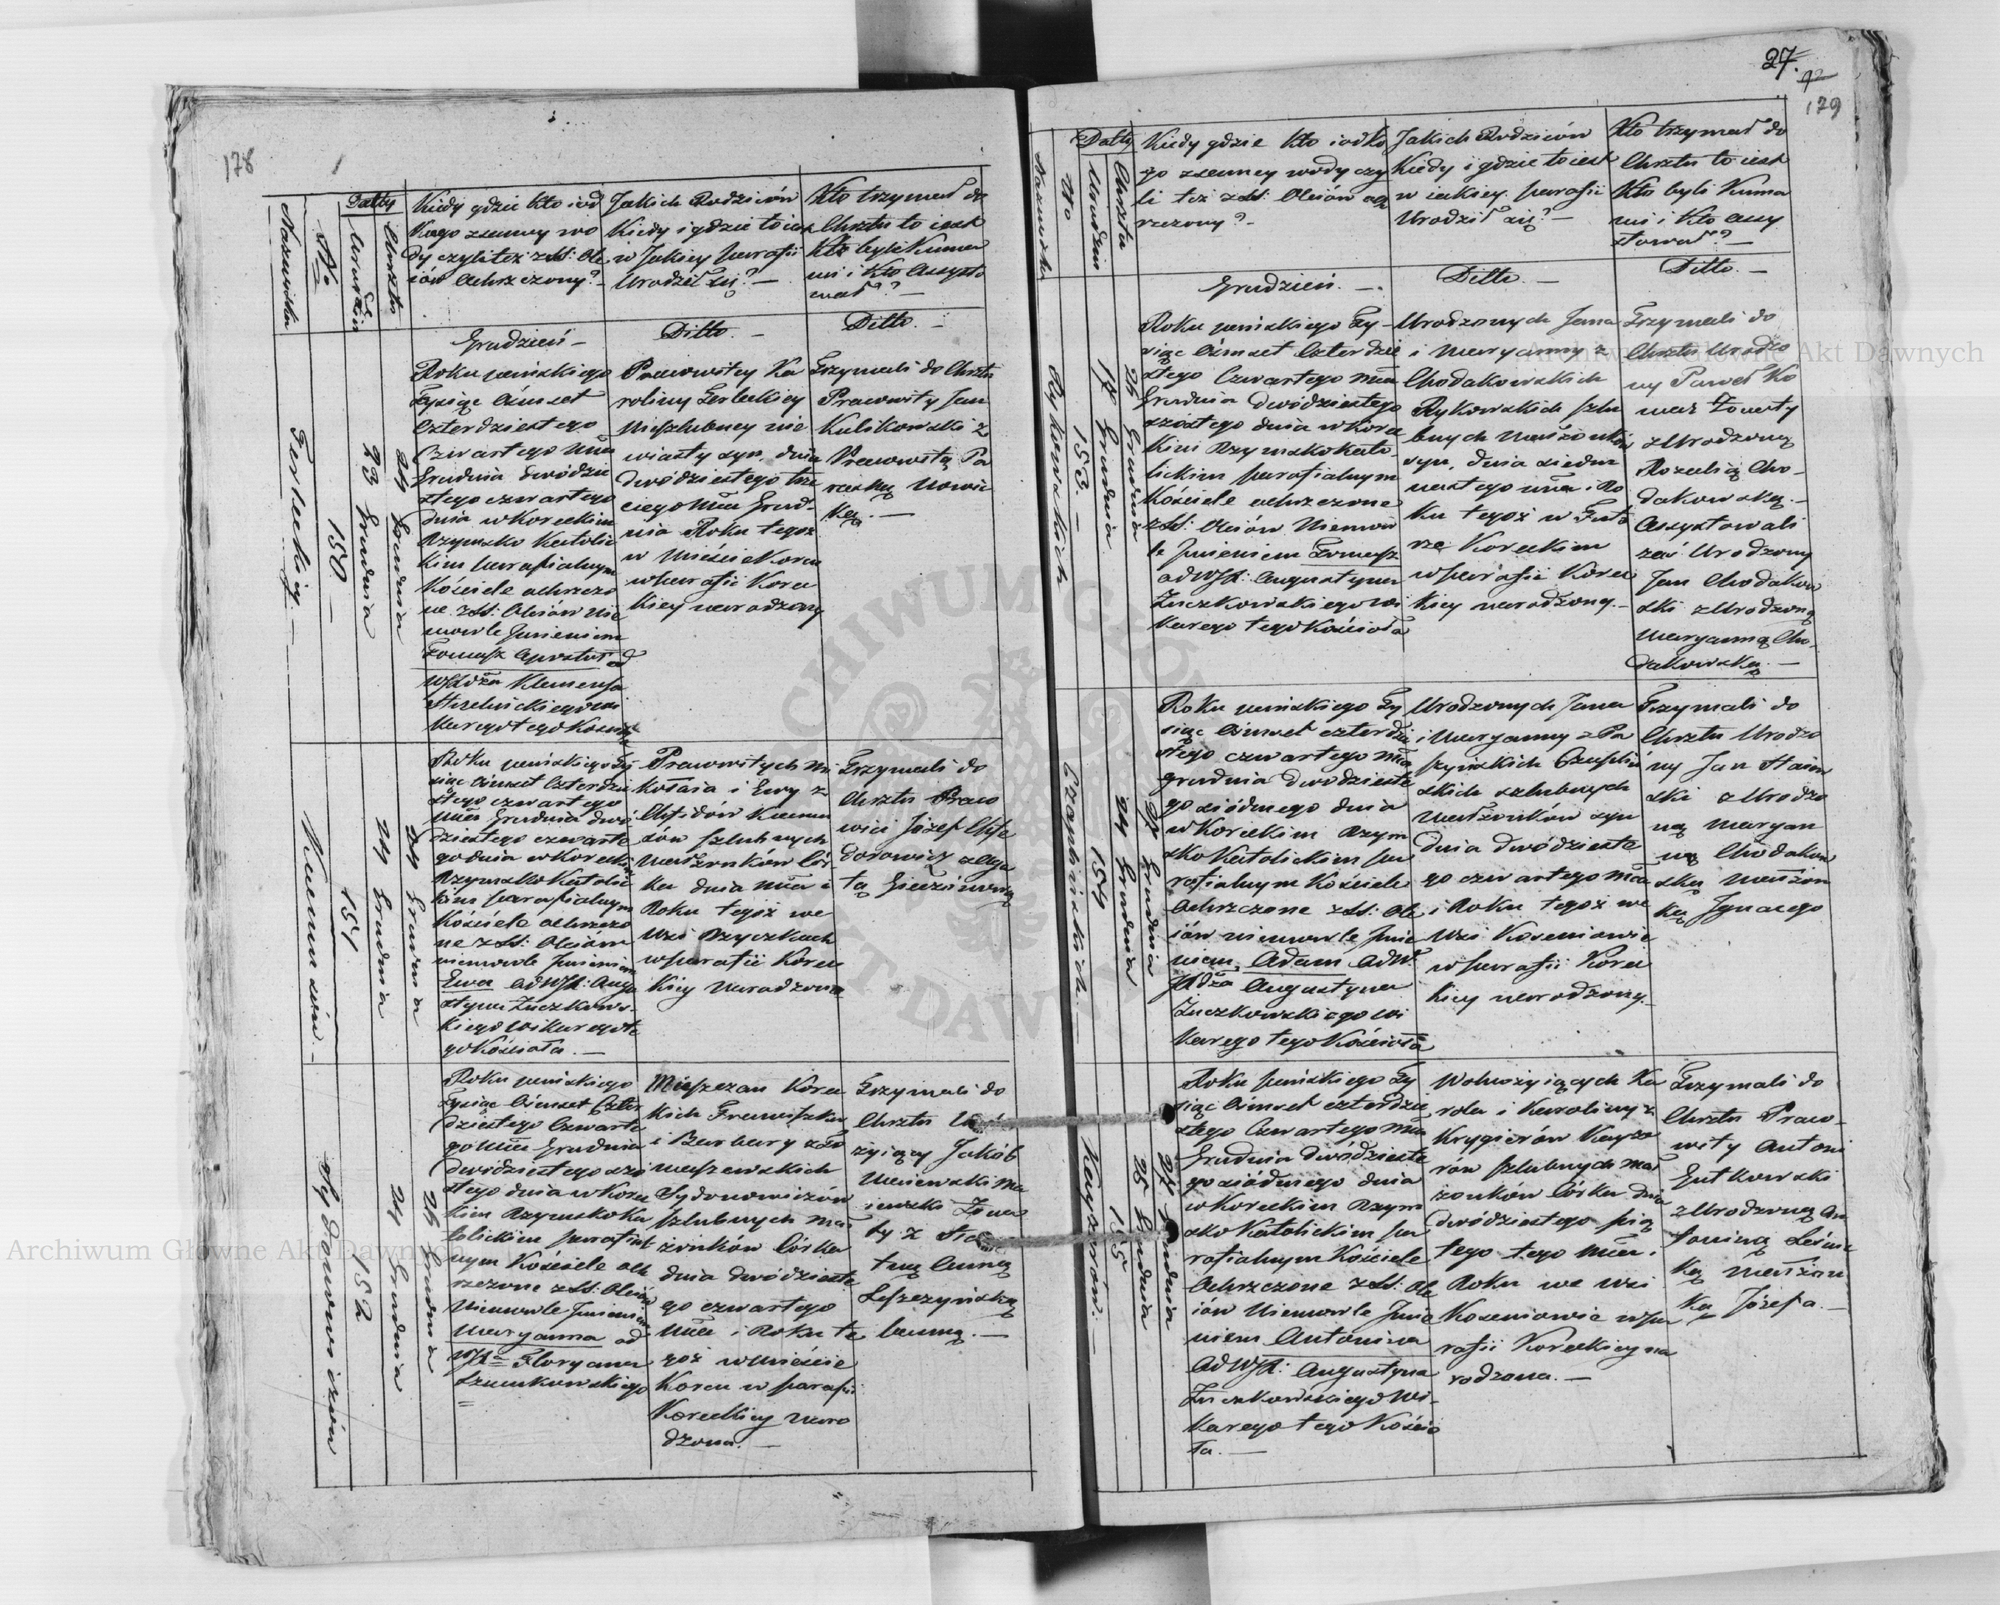 178
Nazwiska
No
Datty
Urodzin
Chrztu
Kiedy gdzie kto i od
kogo z samey wo
dy czyli też z SS: Ole
iów ochrzczony?
Jakich Rodziców
Kiedy i gdzie to iest
w Jakiey parafii
Urodził się? —
Kto trzymał do
Chrztu to iest
Kto byli Kuma
mi i kto assysto
wał? —
Grudzień —
Ditto. —
Ditto. —
Terleckiey. —
150 —
23 Grudnia
24 Grudnia
Roku pańskiego
Tysiąc ośmset
Czterdziestego
Czwartego mca
Grudnia dwódzie
stego czwartego
dnia w Koreckim
Rzymsko Katolic
kim parafialnym
Kościele ochrzczo
ne z SS: Oleiów nie
mowle Imieniem
Tomasz Apostoł od
WJXdza Klemensa
wi
karego tego Kościoła
Pracowitey Ka
roliny Terleckiey
Nieszlubney nie
wiasty syn, dnia
dwódziestego trze
ciego mca Grud-
nia Roku tegoż
w Mieście Korcu
w parafii Korec
kiey narodzony
Trzymali do Chrztu
Pracowity Jan
Kulikowski z
Pracowitą Pa
raską Nowic
ką. —
Klemensów. —
151
24 Grudnia
24 Grudnia
Roku pańskiego Ty
siąc ośmset Czterdzie
stego czwartego
mca Grudnia dwó
dziestego czwarte
go dnia w Koreckim
Rzymsko Katolic
kim parafialnym
Kościele ochrzczo
ne z SS: Oleiów
niemowle Imieniem
Ewa od WJX: Augu
styna Żuczkows-
kiego wikarego te
go Kościoła. —
Pracowitych Mi
kołaia i Ewy z
szlubnych
Małżonków Cór
ka dnia mca i
Roku tegoż we
Wsi Rzyczkach
w parafii Korec
kiey narodzona
Trzymali do
Chrztu Praco
wici Józef
z Aga
tą
Sydonowiczów
152
24 Grudnia
26 Grudnia
Roku pańskiego
Tysiąc ośmset Czter
dziestego Czwarte
go mca Grudnia
dwódziestego szó
stego dnia w Korec
kim Rzymsko Ka
tolickim parafial
nym Kościele och
rzczone z SS: Oleiów
Niemowle Imieniem
Maryanna od
WJX Floryana
Szumkowskiego
Mieszczan Korec
kich Franciszka
i Barbary z To
maszewskich
Sydonowiczów
szlubnych Mał
żonków Córka
dnia dwódzieste
go czwartego
mca i Roku te
goż w Mieście
Korcu w parafii
Koreckiey naro
dzona. —
Trzymali do
Chrztu
żyiący Jakób
ty z
Anną
Leszczyńską
27.
92
179
Nazwiska
No
Datty
Urodzin
Chrzta
Kiedy gdzie kto i od ko
go z samey wody czy
li też z SS: Oleiów och
rzczony? —
Jakich Rodziców
Kiedy i gdzie to iest
w iakiey parafii
Urodził się? —
Kto trzymał do
Chrztu to iest
Kto byli Kuma
mi i Kto assy
stował? —
Grudzień. —
Ditto —
Ditto. —
Rykowskich
153. —
17 Grudnia
26 Grudnia
Roku pańskiego Ty-
siąc ośmset Czterdzie
stego Czwartego mca
Grudnia dwódziestego
szóstego dnia w Korec
kim Rzymsko kato-
lickim parafialnym
Kościele ochrzczone
z SS: Oleiów Niemow
le Imieniem Tomasz
od WJX: Augustyna
Żuczkowskiego wi
karego tego Kościoła
Urodzonych Jana
i Maryanny z
Chodakowskich
Rykowskich szlu
bnych Małżonków
syn, dnia siedm
nastego mca i Ro
ku tegoż w Futo
rze Koreckim
w parafii Korec
kiey narodzony. —
Trzymali do
Chrztu Urodzo
ny Paweł Ko
z Urodzoną
Rozalią Cho-
dakowską. —
Assystowali
zaś Urodzony
Jan Chodakow
ski z Urodzoną
Maryanną Cho-
dakowską. —
Czaplińskich —
154
24 Grudnia
27 Grudnia
Roku pańskiego Ty
siąc ośmset czterdzie
stego czwartego mca
Grudnia dwódzieste
go siódmego dnia
w Koreckim Rzym
sko Katolickim pa
rafialnym Kościele
Ochrzczone z SS: Ole
iów niemowle Imie
niem Adam od W.
JXdza Augustyna
Żuczkowskiego wi
karego tego Kościoła
Urodzonych Jana
i Maryanny z Ra
szyńskich Czapliń
skich szlubnych
małżonków syn
dnia dwódzieste
go czwartego mca
i Roku tegoż we
Wsi Koseniowie
w parafii Korec
kiey narodzony. —
Trzymali do
Chrztu Urodzo
ny Jan
ski z Urodzo
ną Maryan
ną Chodakow
ską Małżon
ką Ignacego
Kayzerów. —
155
25 Grudnia
27 Grudnia
Roku pańskiego Ty
siąc ośmset czterdzie
stego Czwartego mca
Grudnia dwódzieste
go siódmego dnia
w Koreckim Rzym
sko Katolickim pa
rafialnym Kościele
Ochrzczone z SS: Ole
iów Niemowle Imie
niem Antonina
od WJX: Augustyna
Żuczkowskiego Wi-
karego tego Kościo
ła. —
Wolnożyiących Ka
rola i Karoliny z
Krygierów Kayze
rów szlubnych Mał
żonków Córka dnia
dwódziestego pią
tego tego mca i
Roku we Wsi
Koseniowie w pa
rafii Koreckiey na
rodzona. —
Trzymali do
Chrztu Praco-
wity Antoni
Gutkowski
z Urodzoną An
toniną
ką Małżon
ką Józefa. —
Archiwum Główne Akt Dawnych
Archiwum Główne Akt Dawnych
ARCHIWUM GŁÓWNE AKT DAWNYCH